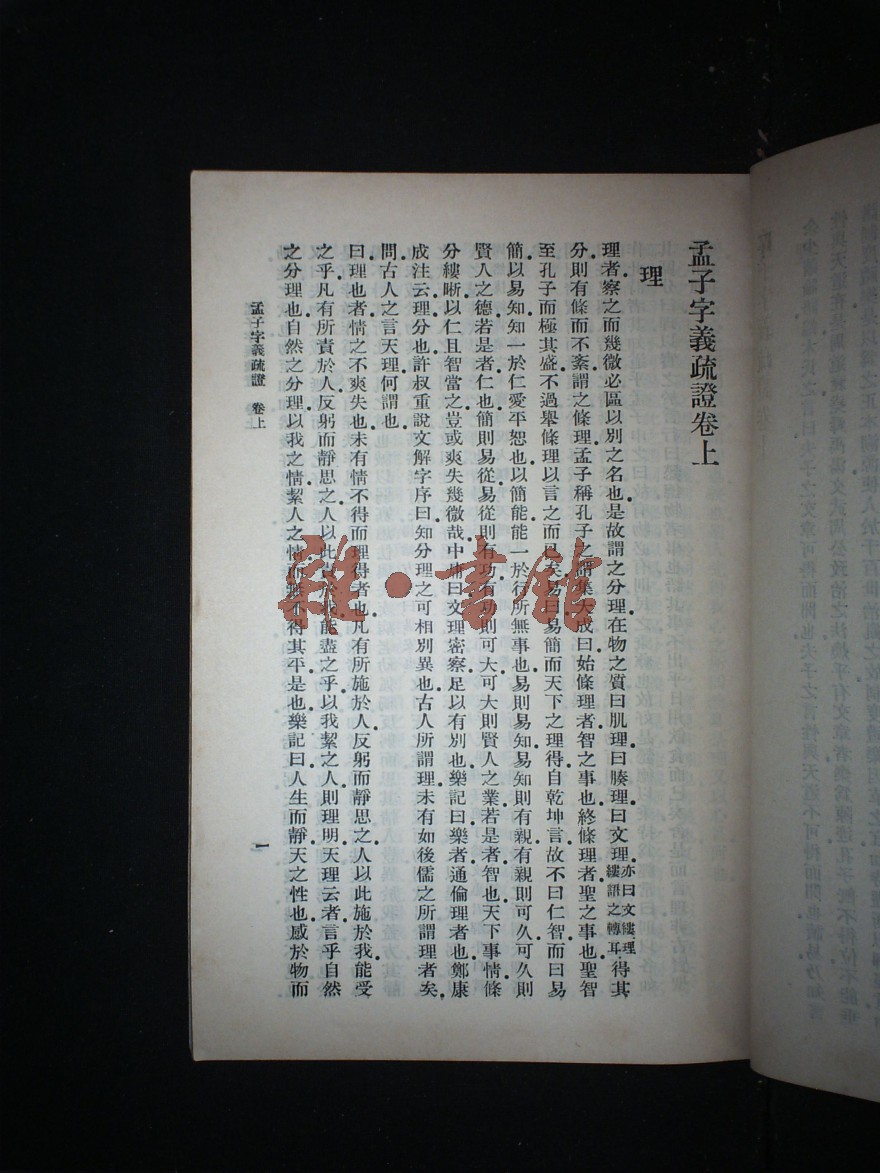 孟子字義疏證卷上
理
理者察之而幾微必區以別之名也是故謂之分理在物之質曰肌理曰腠理曰文理亦曰文縷理縷語之轉耳得其
分則有條而不紊謂之條理孟子稱孔子之謂集大成曰始條理者智之事也終條理者聖之事也聖智
至孔子而極其盛不過舉條理以言之而已矣易曰易簡而天下之理得自乾坤言故不曰仁智而曰易
簡以易知知一於仁愛平恕也以簡能能一於行所無事也易則易知易知則有親有親則可久可久則
賢人之德若是者仁也簡則易從易從則有功有功則可大可大則賢人之業若是者智也天下事情條
分縷晰以仁且智當之豈或爽失幾微哉中庸曰文理密察足以有別也樂記曰樂者通倫理者也鄭康
成注云理分也許叔重說文解字序曰知分理之可相別異也古人所謂理未有如後儒之所謂理者矣
問古人之言天理何謂也
曰理也者情之不爽失也未有情不得而理得者也凡有所施於人反躬而靜思之人以此施於我能受
之乎凡有所責於人反躬而靜思之人以此責於我能盡之乎以我絜之人則理明天理云者言乎自然
之分理也自然之分理以我之情絜人之情而無不得其平是也樂記曰人生而靜天之性也感於物而
孟子字義疏證 卷上
一
雜·書館